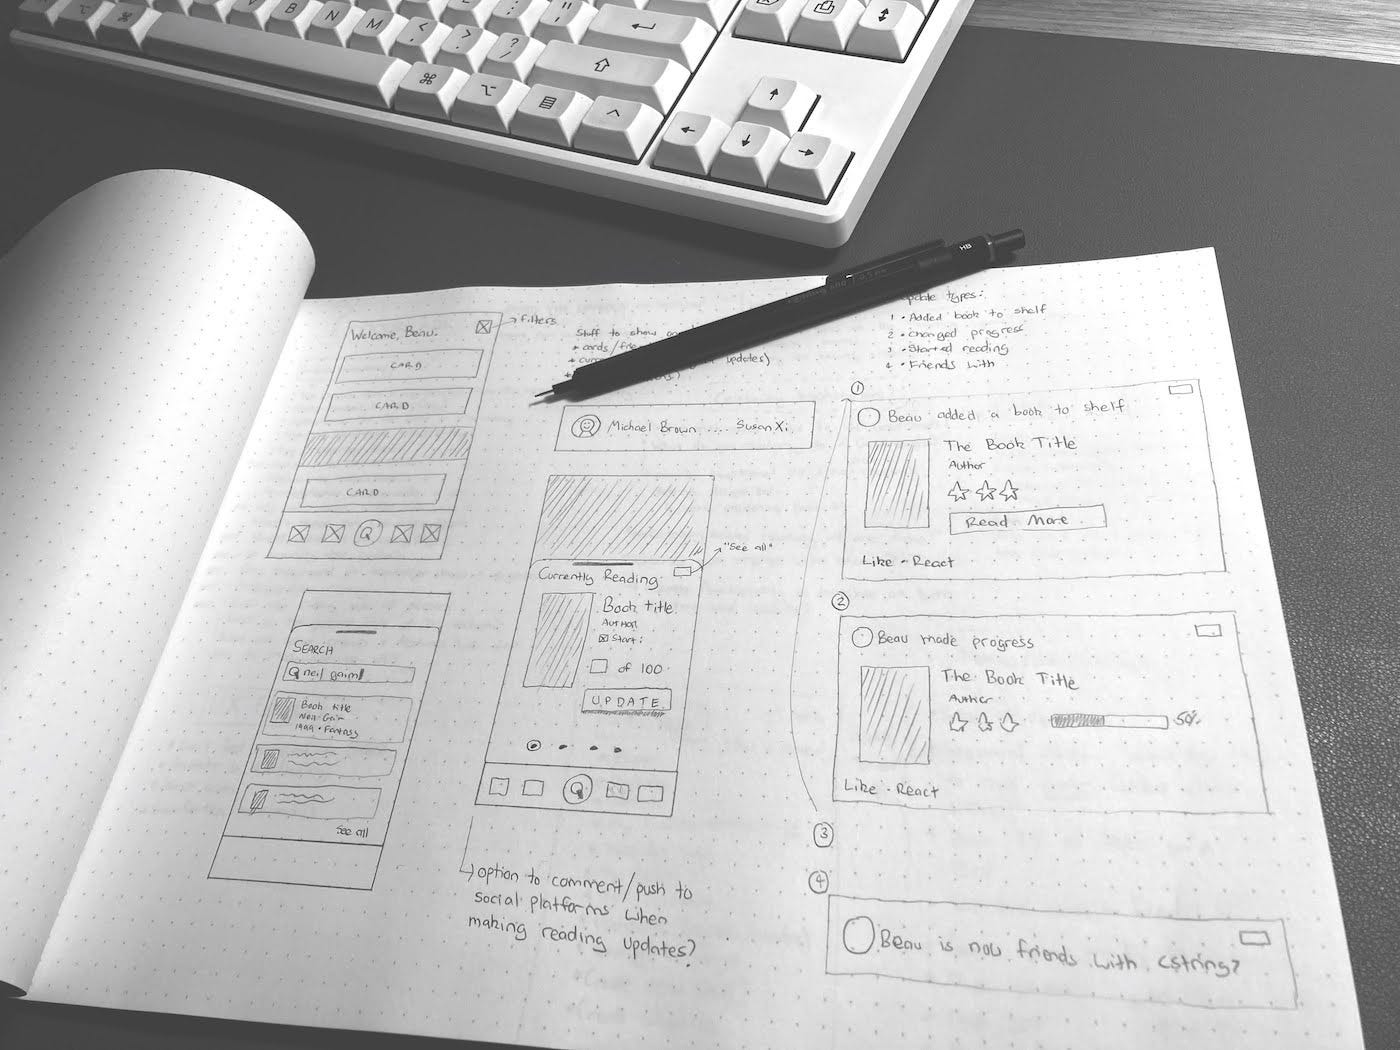 V
B
N
M
< ,
> .
? /
HB
Welcome, Beau.
filters
CARD
CARD
CARD
Q
Stuff to show
cards/
updates)
Michael Brown .... Susan Xi
"See all"
Currently Reading
Book title
Author
Start:
of 100
UPDATE
Q
SEARCH
neil gaim
Book title
Neil Gaim
1999 · Fantasy
See all
option to comment/push to
social platforms when
making reading updates?
types:
1 • Added book to shelf
2 • changed progress
3 • Started reading
4 • Friends with
1
Beau added a book to shelf
The Book Title
Author
Read More
Like · React
2
Beau made progress
The Book Title
Author
50%
Like · React
3
4
Beau is now friends with <string>?